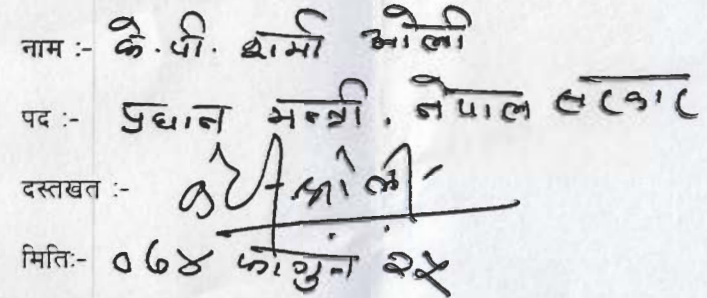 नाम :- के.पी. शर्मा ओली
पद :- प्रधान मन्त्री, नेपाल सरकार
दस्तखत :- केपी ओली
मिति:- ०७४ फागुन २५